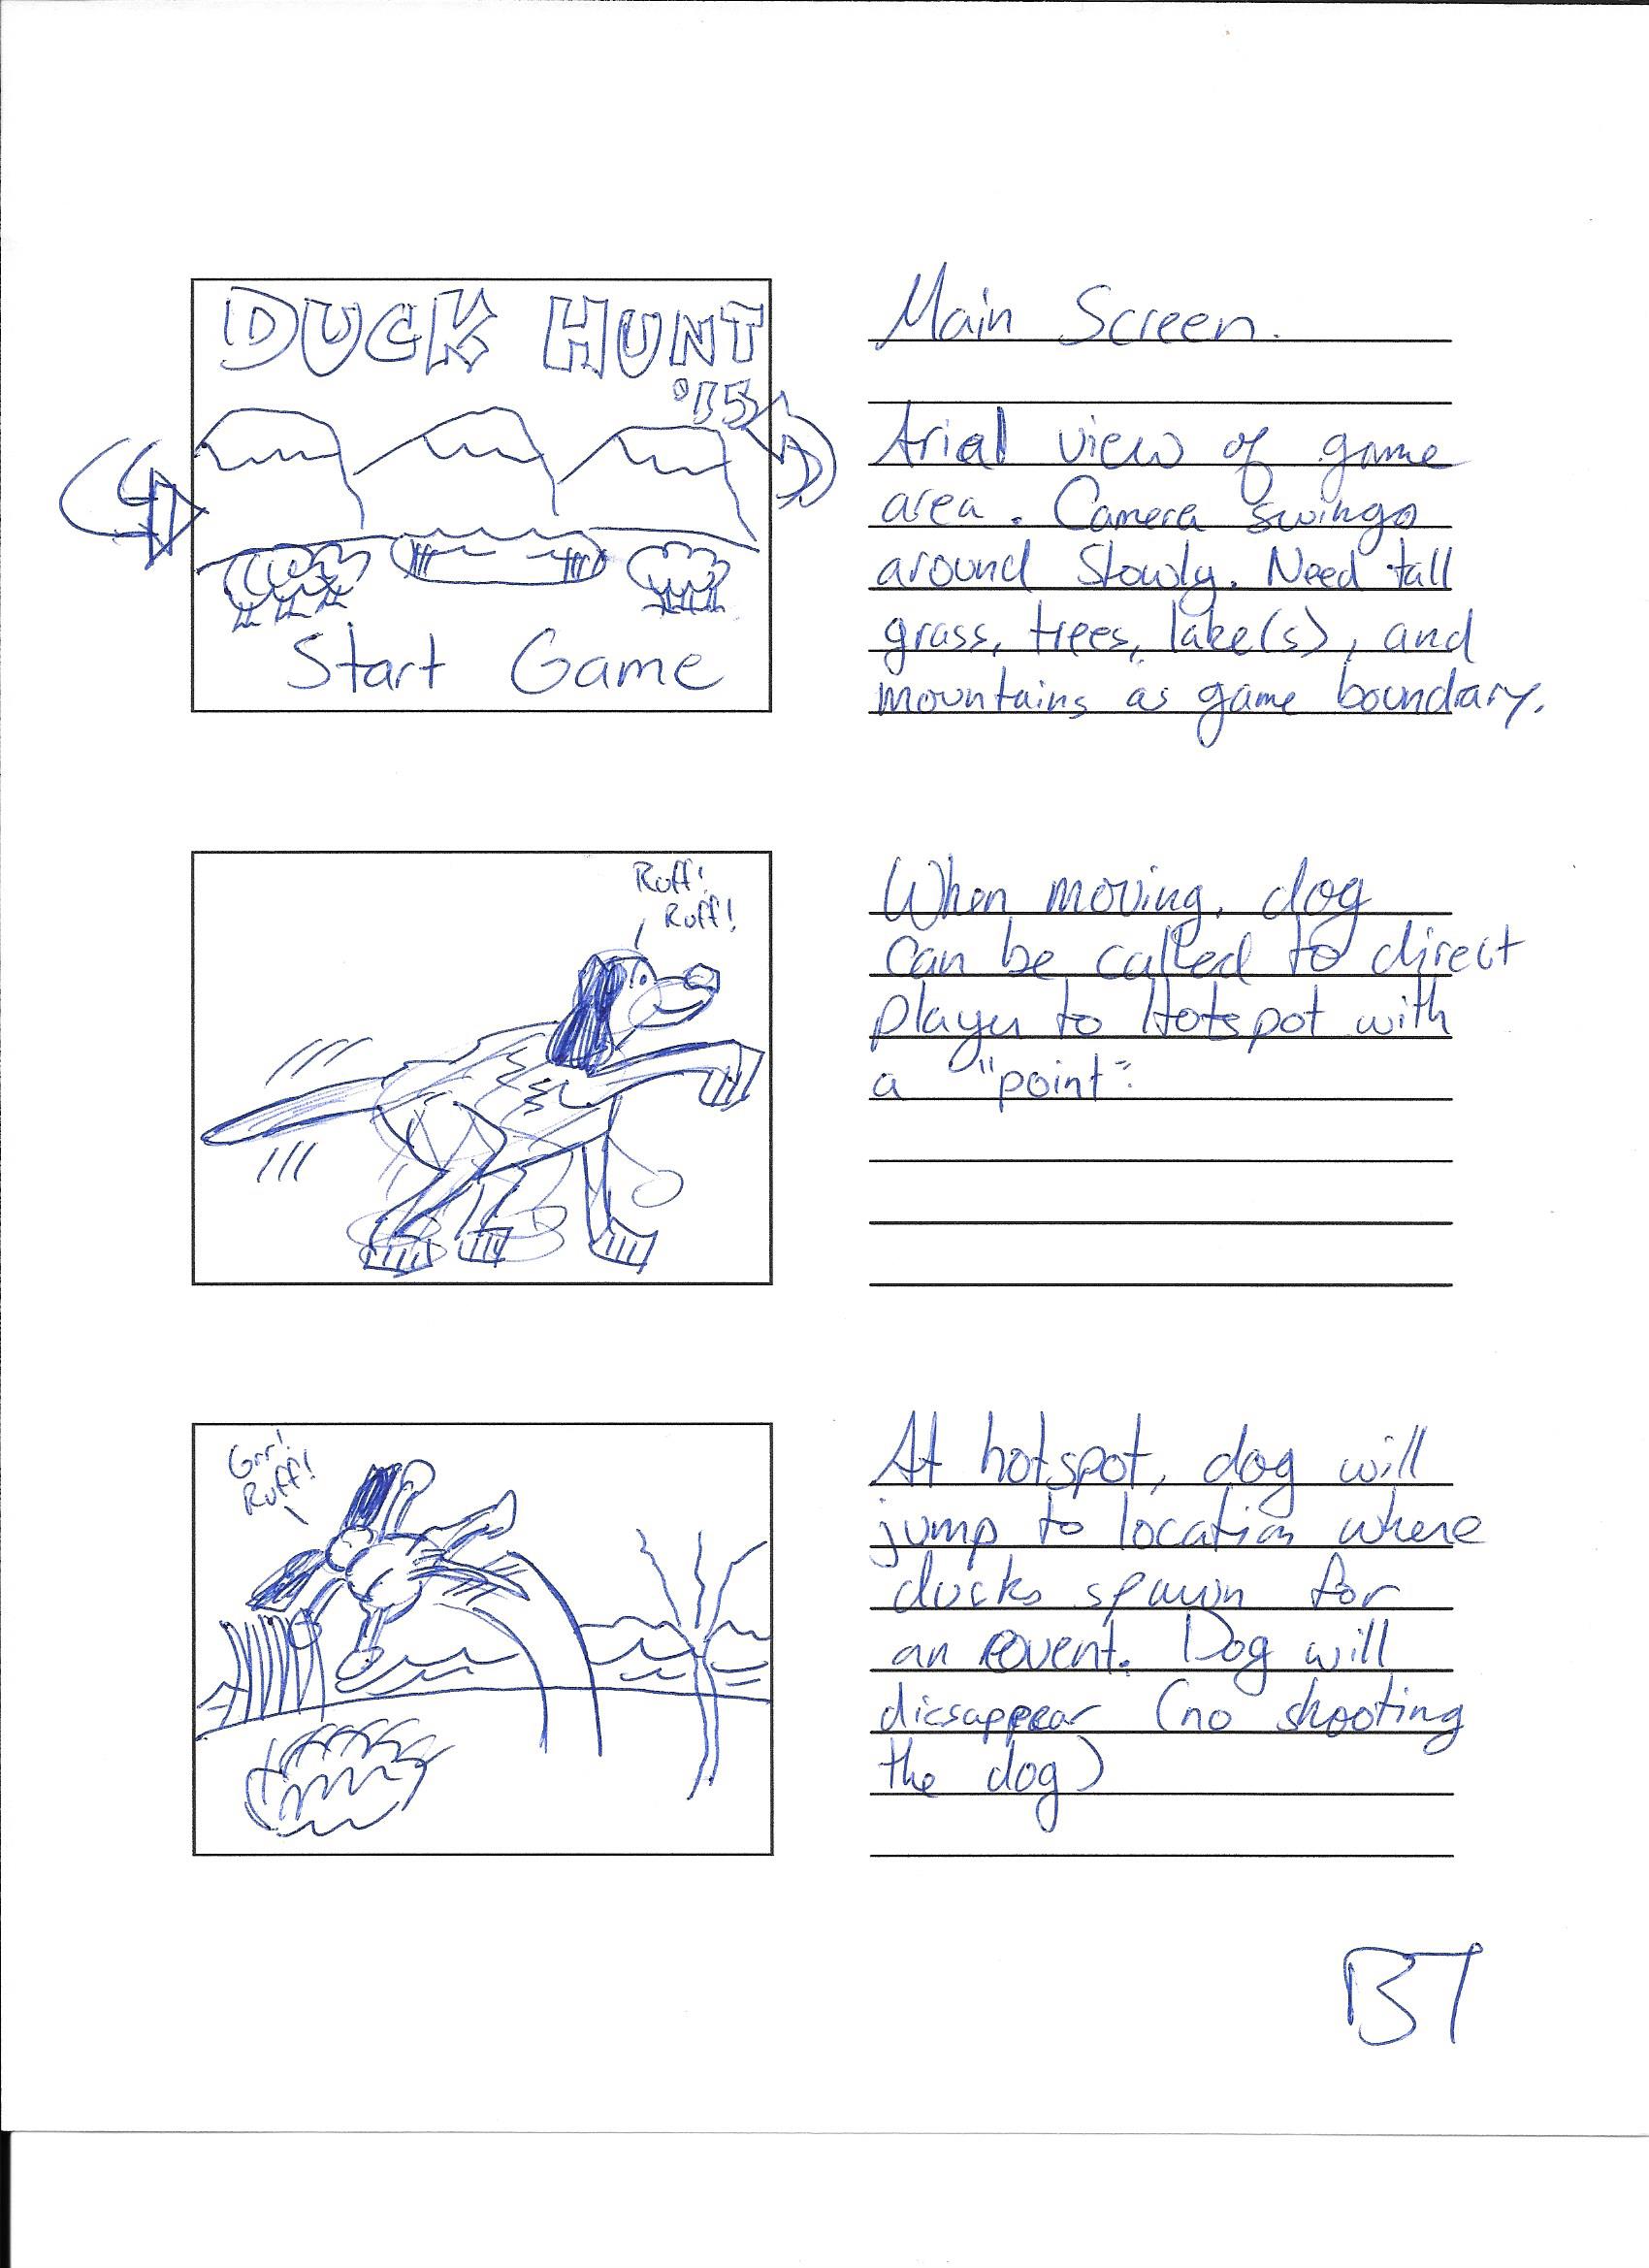 DUCK HUNT
'15
Start Game
Main Screen.
Arial view of game
area. Camera swings
around slowly. Need tall
grass, trees, lake(s), and
mountains as game boundary.
Ruff!
Ruff!
When moving, dog
can be called to direct
player to Hotspot with
a "point".
Grr!
Ruff!
At hotspot, dog will
jump to location where
ducks spawn for
an event. Dog will
dicsappear (no shooting
the dog)
BT